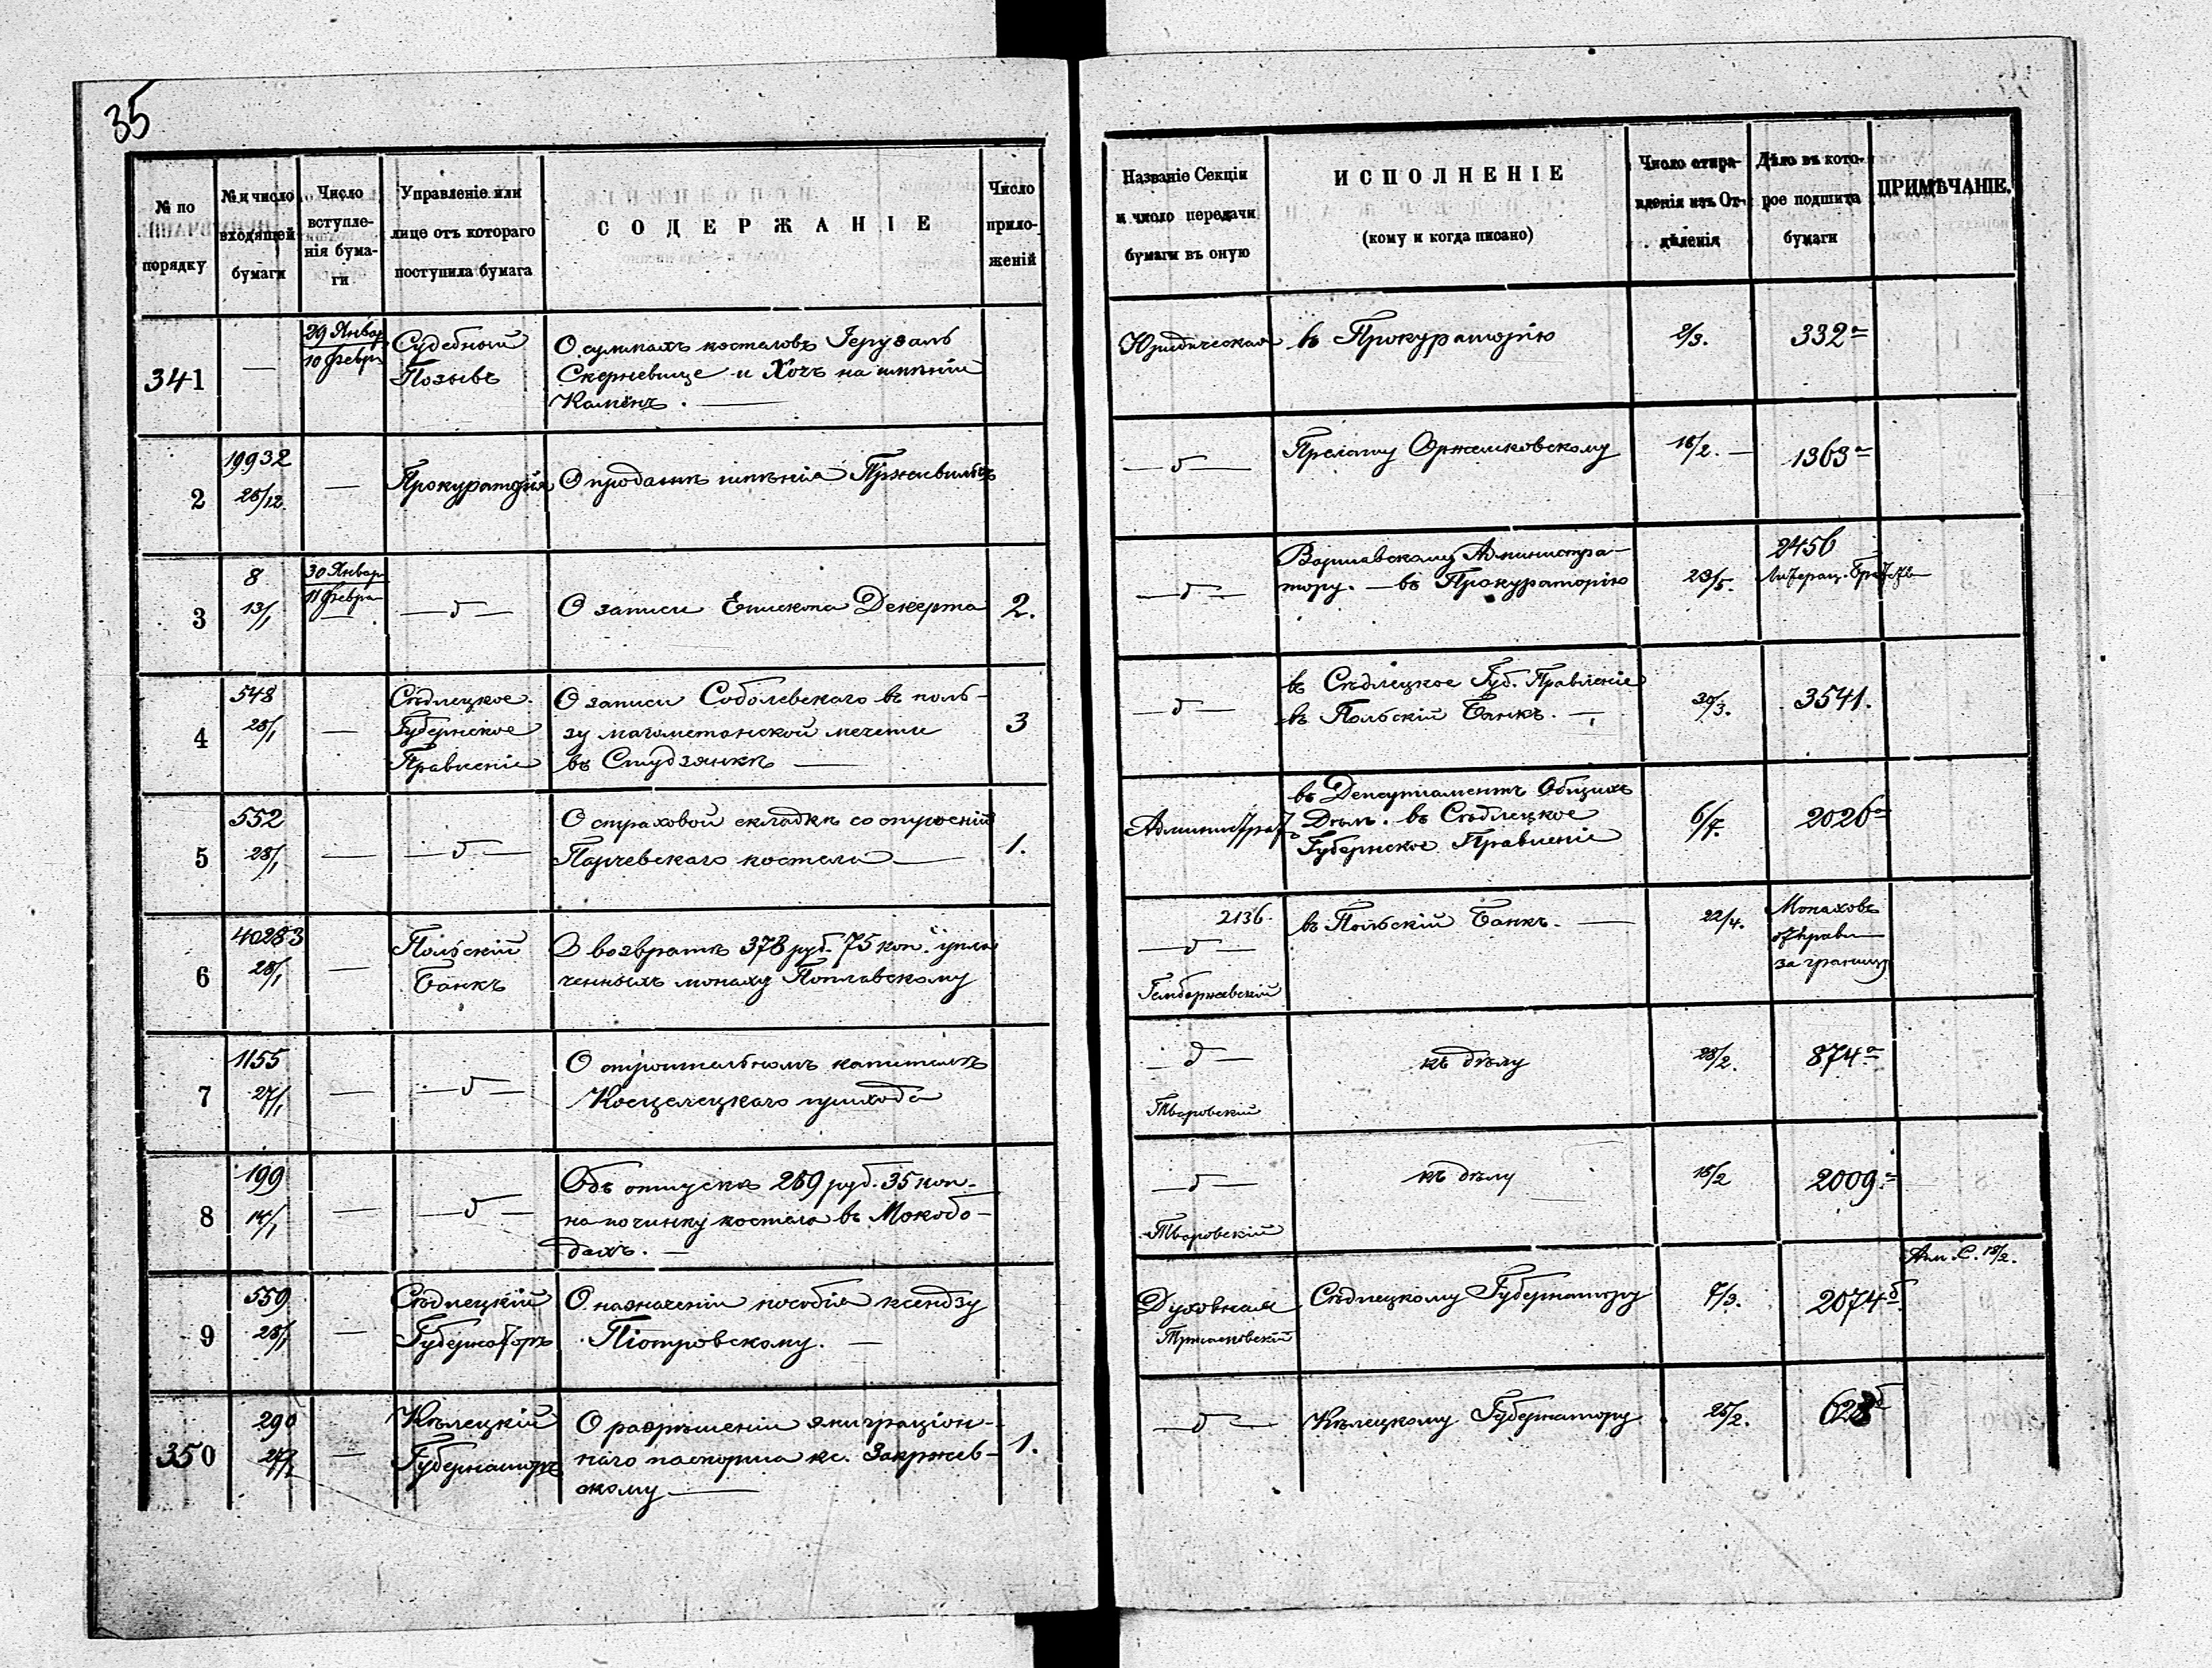 35
№ по порядку
№ и число входящей бумаги
Число вступленія бумаги
Управленіе или лице отъ котораго поступила бумага
СОДЕРЖАНІЕ
Число приложеній
Названіе Секціи и число передачи бумаги въ оную
ИСПОЛНЕНІЕ
(кому и когда писано)
Число отправленія изъ Отдѣленія
Дѣло въ которое подшита бумаги
ПРИМѢЧАНІЕ.
341
—
29 Январ
10 Февр
Судебный
Позывъ
О суммахъ костеловъ Іерузаль
Скерневице и Хочъ на имѣніи
Камёнъ. —
Юридическая
въ Прокураторію
2/3.
332а
2
19932
28/12.
—
Прокураторія
О продажѣ имѣнія
— д —
Прелату Оржемковскому
16/2. —
1363а
3
8
13/1
30 Январ
11 Февра
— д —
О записи Епископа Декерта
2.
— д —
Варшавскому Администра-
тору. — въ Прокураторію
23/5.
2456
Литерац. Братства
4
548
28/1
—
Сѣдлецкое
Губернское
Правленіе
О записи Соболевскаго въ поль-
зу магометанской мечети
въ Студзянкѣ —
3
— д —
въ Сѣдлецкое Губ. Правленіе
въ Польскій Банкъ. —
30/3.
3541.
5
552
28/1
—
— д —
О страховой складкѣ со строеній
Парчевскаго костела —
1.
Администрат
въ Департаментъ Общихъ
Дѣлъ. въ Сѣдлецкое
Губернское Правленіе
6/4.
2026а
6
40283
28/1
—
Польскій
Банкъ
О возвратѣ 378 руб. 75 коп. упла
ченныхъ монаху Поплавскому
2136.
— д —
Гемборжевскій
въ Польскій Банкъ. —
22/4.
Монаховъ
отправл
за границу
7
1155
27/1
—
— д —
О строительномъ капиталѣ
Косцелецкаго прихода
— д —
Творовскій
къ дѣлу
28/2.
874а
8
199
14/1
—
— д —
Объ отпускѣ 259 руб. 35 коп.
на починку костела въ Мокобо-
дахъ. —
— д —
Творовскій
къ дѣлу
18/2
2009а
9
559
28/1
—
Сѣдлецкій
Губернаторъ
О назначеніи пособія ксендзу
Піотровскому. —
Духовная
Сѣдлецкому Губернатору
7/3.
2074б
Адм. С. 18/2.
350
290
27/1
—
Кѣлецкій
Губернаторъ
О разрѣшеніи эмиграціон-
наго паспорта кс. Закржев-
скому —
1.
— д —
Кѣлецкому Губернатору
25/2.
628б